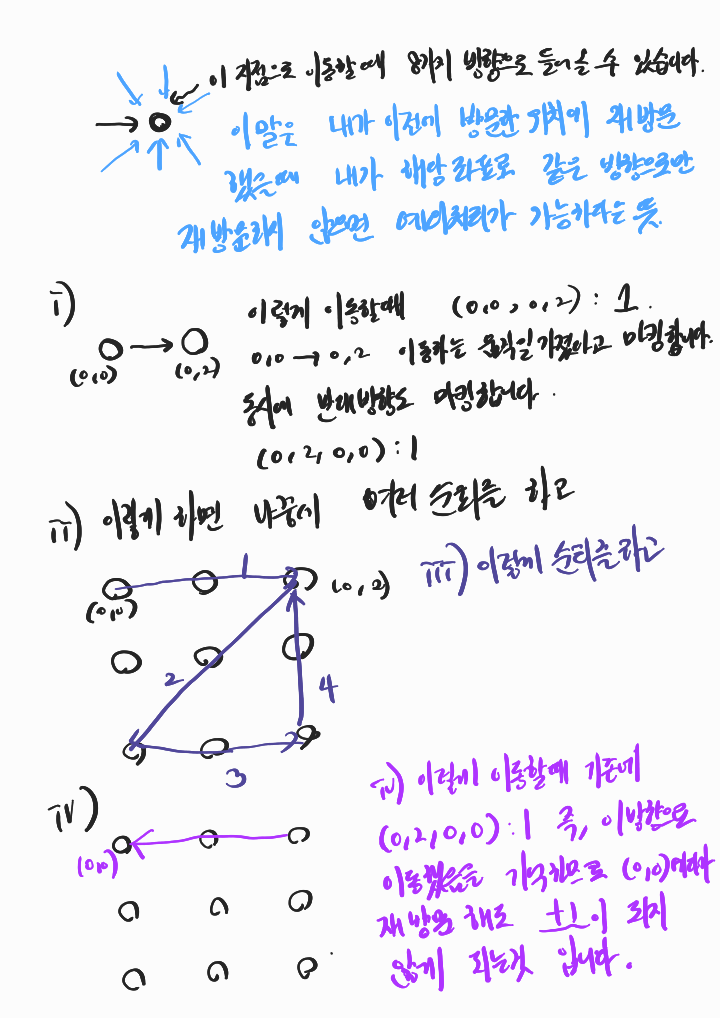 이 지점으로 이동할때 8가지 방향으로 들어올 수 있습니다.
이말은 내가 이전에 방문한 위치에 재방문
했을때 내가 해당 좌표로 같은 방향으로만
재방문하지 않으면 예외처리가 가능하다는 뜻.
i)
(0,0)
(0,2)
이렇게 이동할때 (0,0,0,2) : 1.
0,0 → 0,2 이동하는 움직임 가졌다고 마킹합니다.
동시에 반대방향도 마킹합니다.
(0,2,0,0) : 1
ii) 이렇게 하면 나중에 여러 순회를 하고
iii) 이렇게 순회를하고
(0,0)
(0,2)
1
2
3
4
iv)
(0,0)
iv) 이렇게 이동할때 기존에
(0,2,0,0) : 1 즉, 이방향으로
이동했음을 기억하므로 (0,0)에다가
재방문 해도 +1이 되지
않게 되는것 입니다.